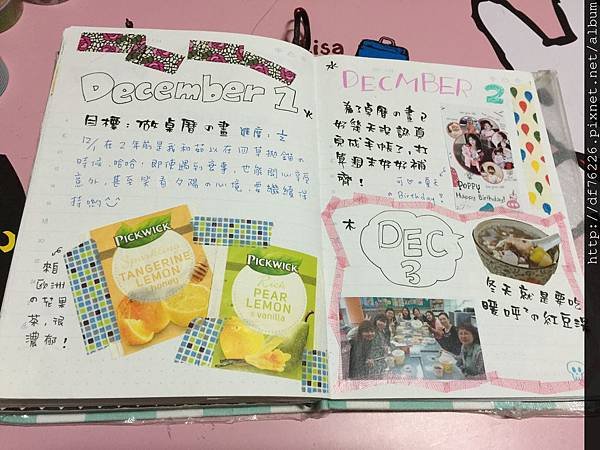 December 1
火
目標：做桌曆の畫 進度：1/2
12/1 在2年前是我和茹以在四草拋錨の
時候，哈哈，即使遇到鳥事，也要開心享受
意外，甚至笑看夕陽の心境，要繼續保
持喲
PICKWICK
TANGERINE
LEMON
honey
PICKWICK
Rich
PEAR
LEMON
& vanilla
來自
歐洲
の花果
茶，很
濃郁！
Lisa
水
DECMBER 2
為了桌曆の畫，
好幾天沒認真
完成手帳了，打
算週末好好補
齊！
POPPY
Happy Birthday!
の Birthday
木
DEC
3
冬天就是要吃
暖呼呼の紅豆湯
http://df76226.pixnet.net/album